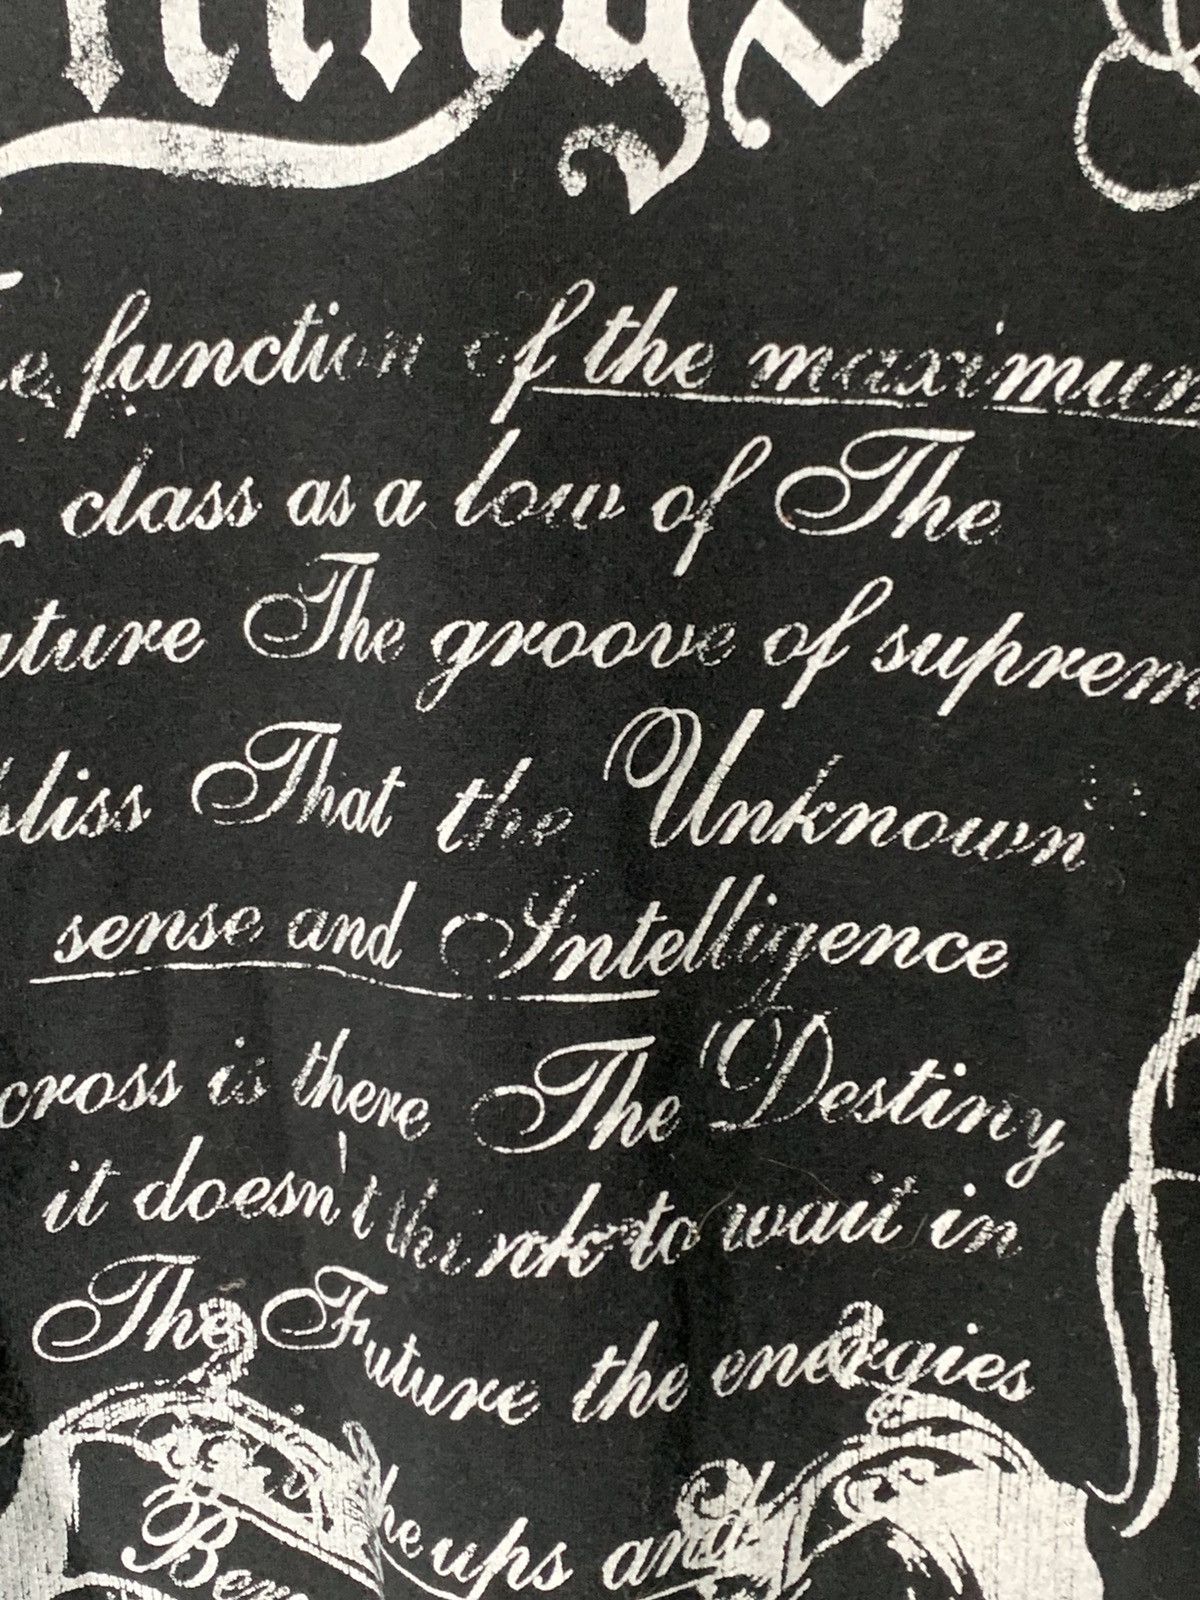 function of the maximum
class as a low of The
uture The groove of suprem
bliss That the Unknown
sense and Intelligence
cross is there The Destiny
it doesn't think to wait in
The Future the energies
the ups and